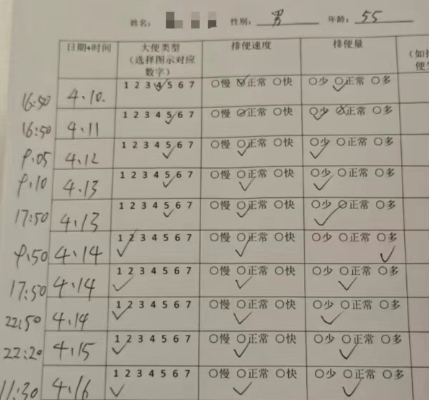 姓名： 性别： 男 年龄： 55
日期+时间 大便类型（选择图示对应数字） 排便速度 排便量
16:50 4.10. 1 2 3 4 5 6 7 ○慢 ○正常 ○快 ○少 ○正常 ○多
16:50 4.11 1 2 3 4 5 6 7 ○慢 ○正常 ○快 ○少 ○正常 ○多
9.05 4.12 1 2 3 4 5 6 7 ○慢 ○正常 ○快 ○少 ○正常 ○多
9.10 4.13 1 2 3 4 5 6 7 ○慢 ○正常 ○快 ○少 ○正常 ○多
17:50 4.13 1 2 3 4 5 6 7 ○慢 ○正常 ○快 ○少 ○正常 ○多
9.50 4.14 1 2 3 4 5 6 7 ○慢 ○正常 ○快 ○少 ○正常 ○多
17:50 4.14 1 2 3 4 5 6 7 ○慢 ○正常 ○快 ○少 ○正常 ○多
22:50 4.14 1 2 3 4 5 6 7 ○慢 ○正常 ○快 ○少 ○正常 ○多
22:20 4.15 1 2 3 4 5 6 7 ○慢 ○正常 ○快 ○少 ○正常 ○多
11:30 4.16 1 2 3 4 5 6 7 ○慢 ○正常 ○快 ○少 ○正常 ○多